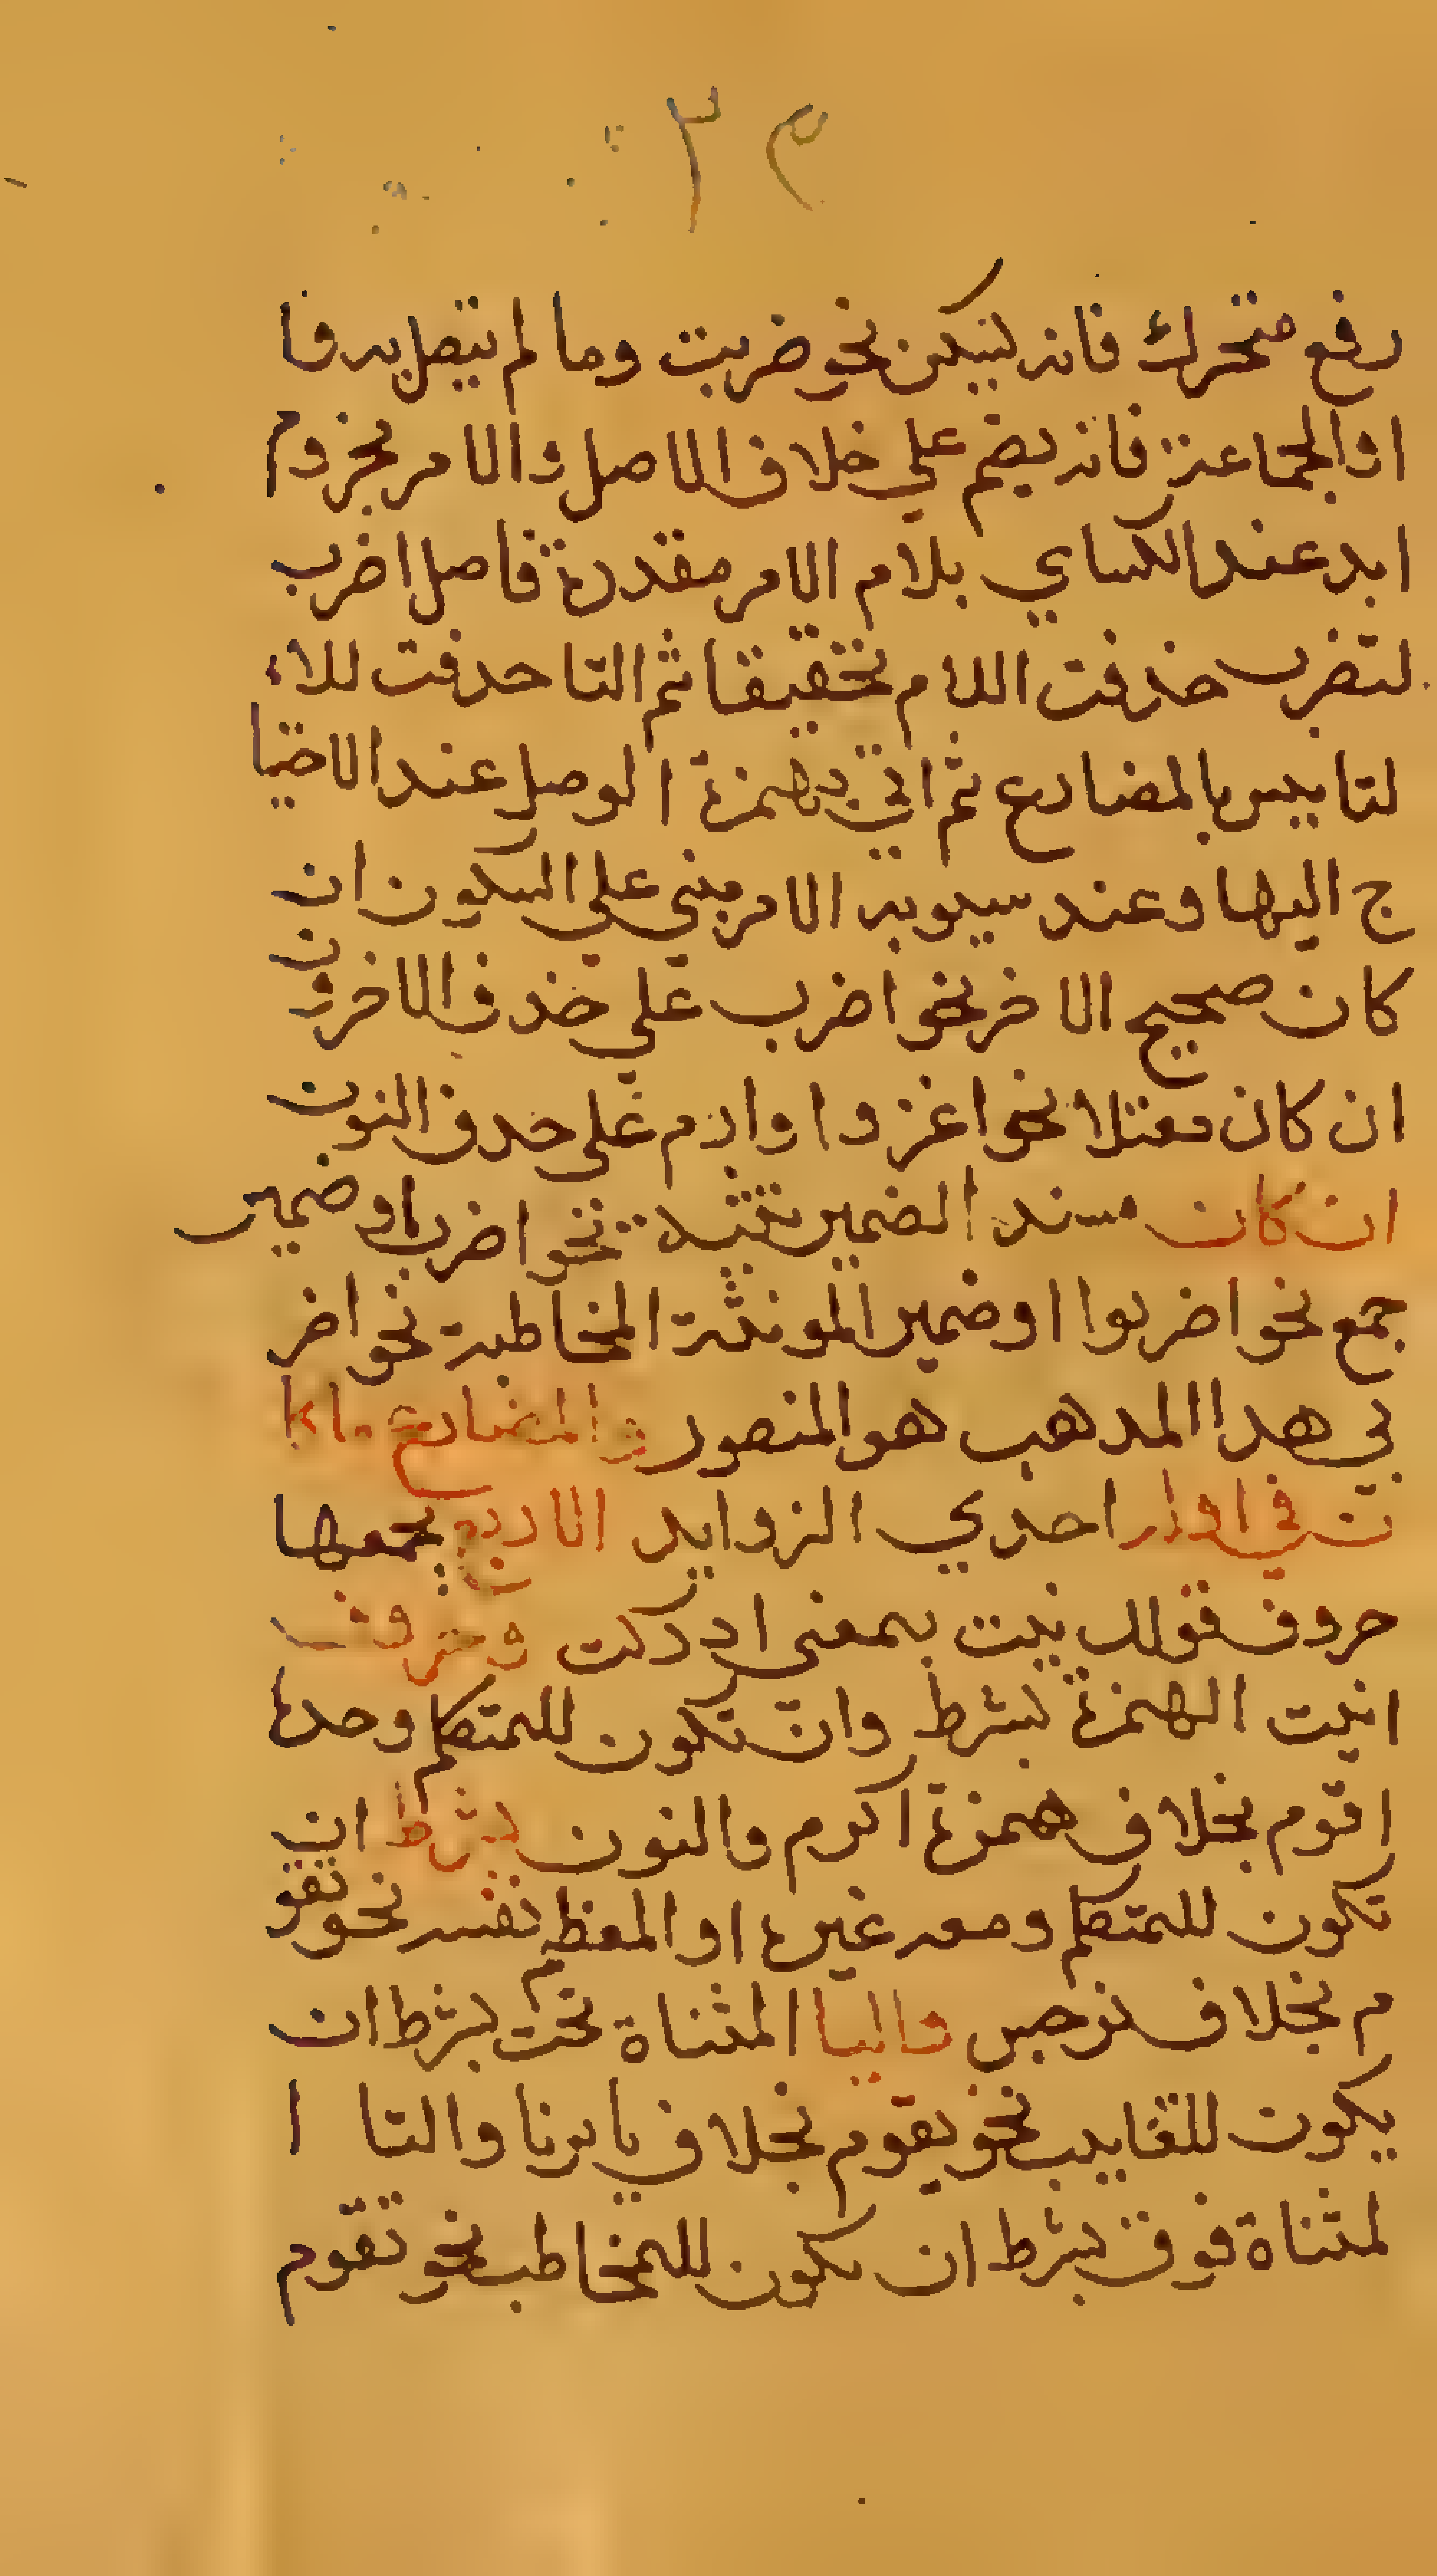 ٣٢
رفع متحرك فانه يسكن نحو ضربت وما لم يتصل به وا
او الجماعة فانه يضم علي خلاف الاصل والامر مجزوم
ابد عند الكساي بلام الامر مقدرة فاصل اضرب
لتضرب حذفت اللام تخفيفا ثم التا حدفت للا
لتا بيس بالمضارع ثم اتي بهمزة الوصل عند الاحتيا
ج اليها وعند سيبويه الامر مبني علي السكون ان
كان صحيح الاخر نحو اضرب علي حذف الاخر ون
ان كان معتلا نحو اغزوا وارم علي حدف النون
ان كان مسند الضمير تثنية نحو اضربا وضمير
جمع نحو اضربوا اوضمير المونثة المخاطبة نحو اضر
بي هدا المدهب هو المنصور والمضارع ما كا
ن في اوله احدي الزوايد الاربع يجمعها
حروف قولك نيت بمعني ادركت وحروف
انيت الهمزة بشرط وان تكون للمتكلم وحدة
اقوم بخلاف همزة اكرم والنون بشرط ان
تكون للمتكلم ومعه غيره او المعظم نفسه نحو نقو
م بخلاف نرجس واليا المثناة تحت بشرط ان
يكون للغايب نحو يقوم بخلاف يا يرنا والتا ا
لمثناة فوق بشرط ان تكون للمخاطب نحو تقوم